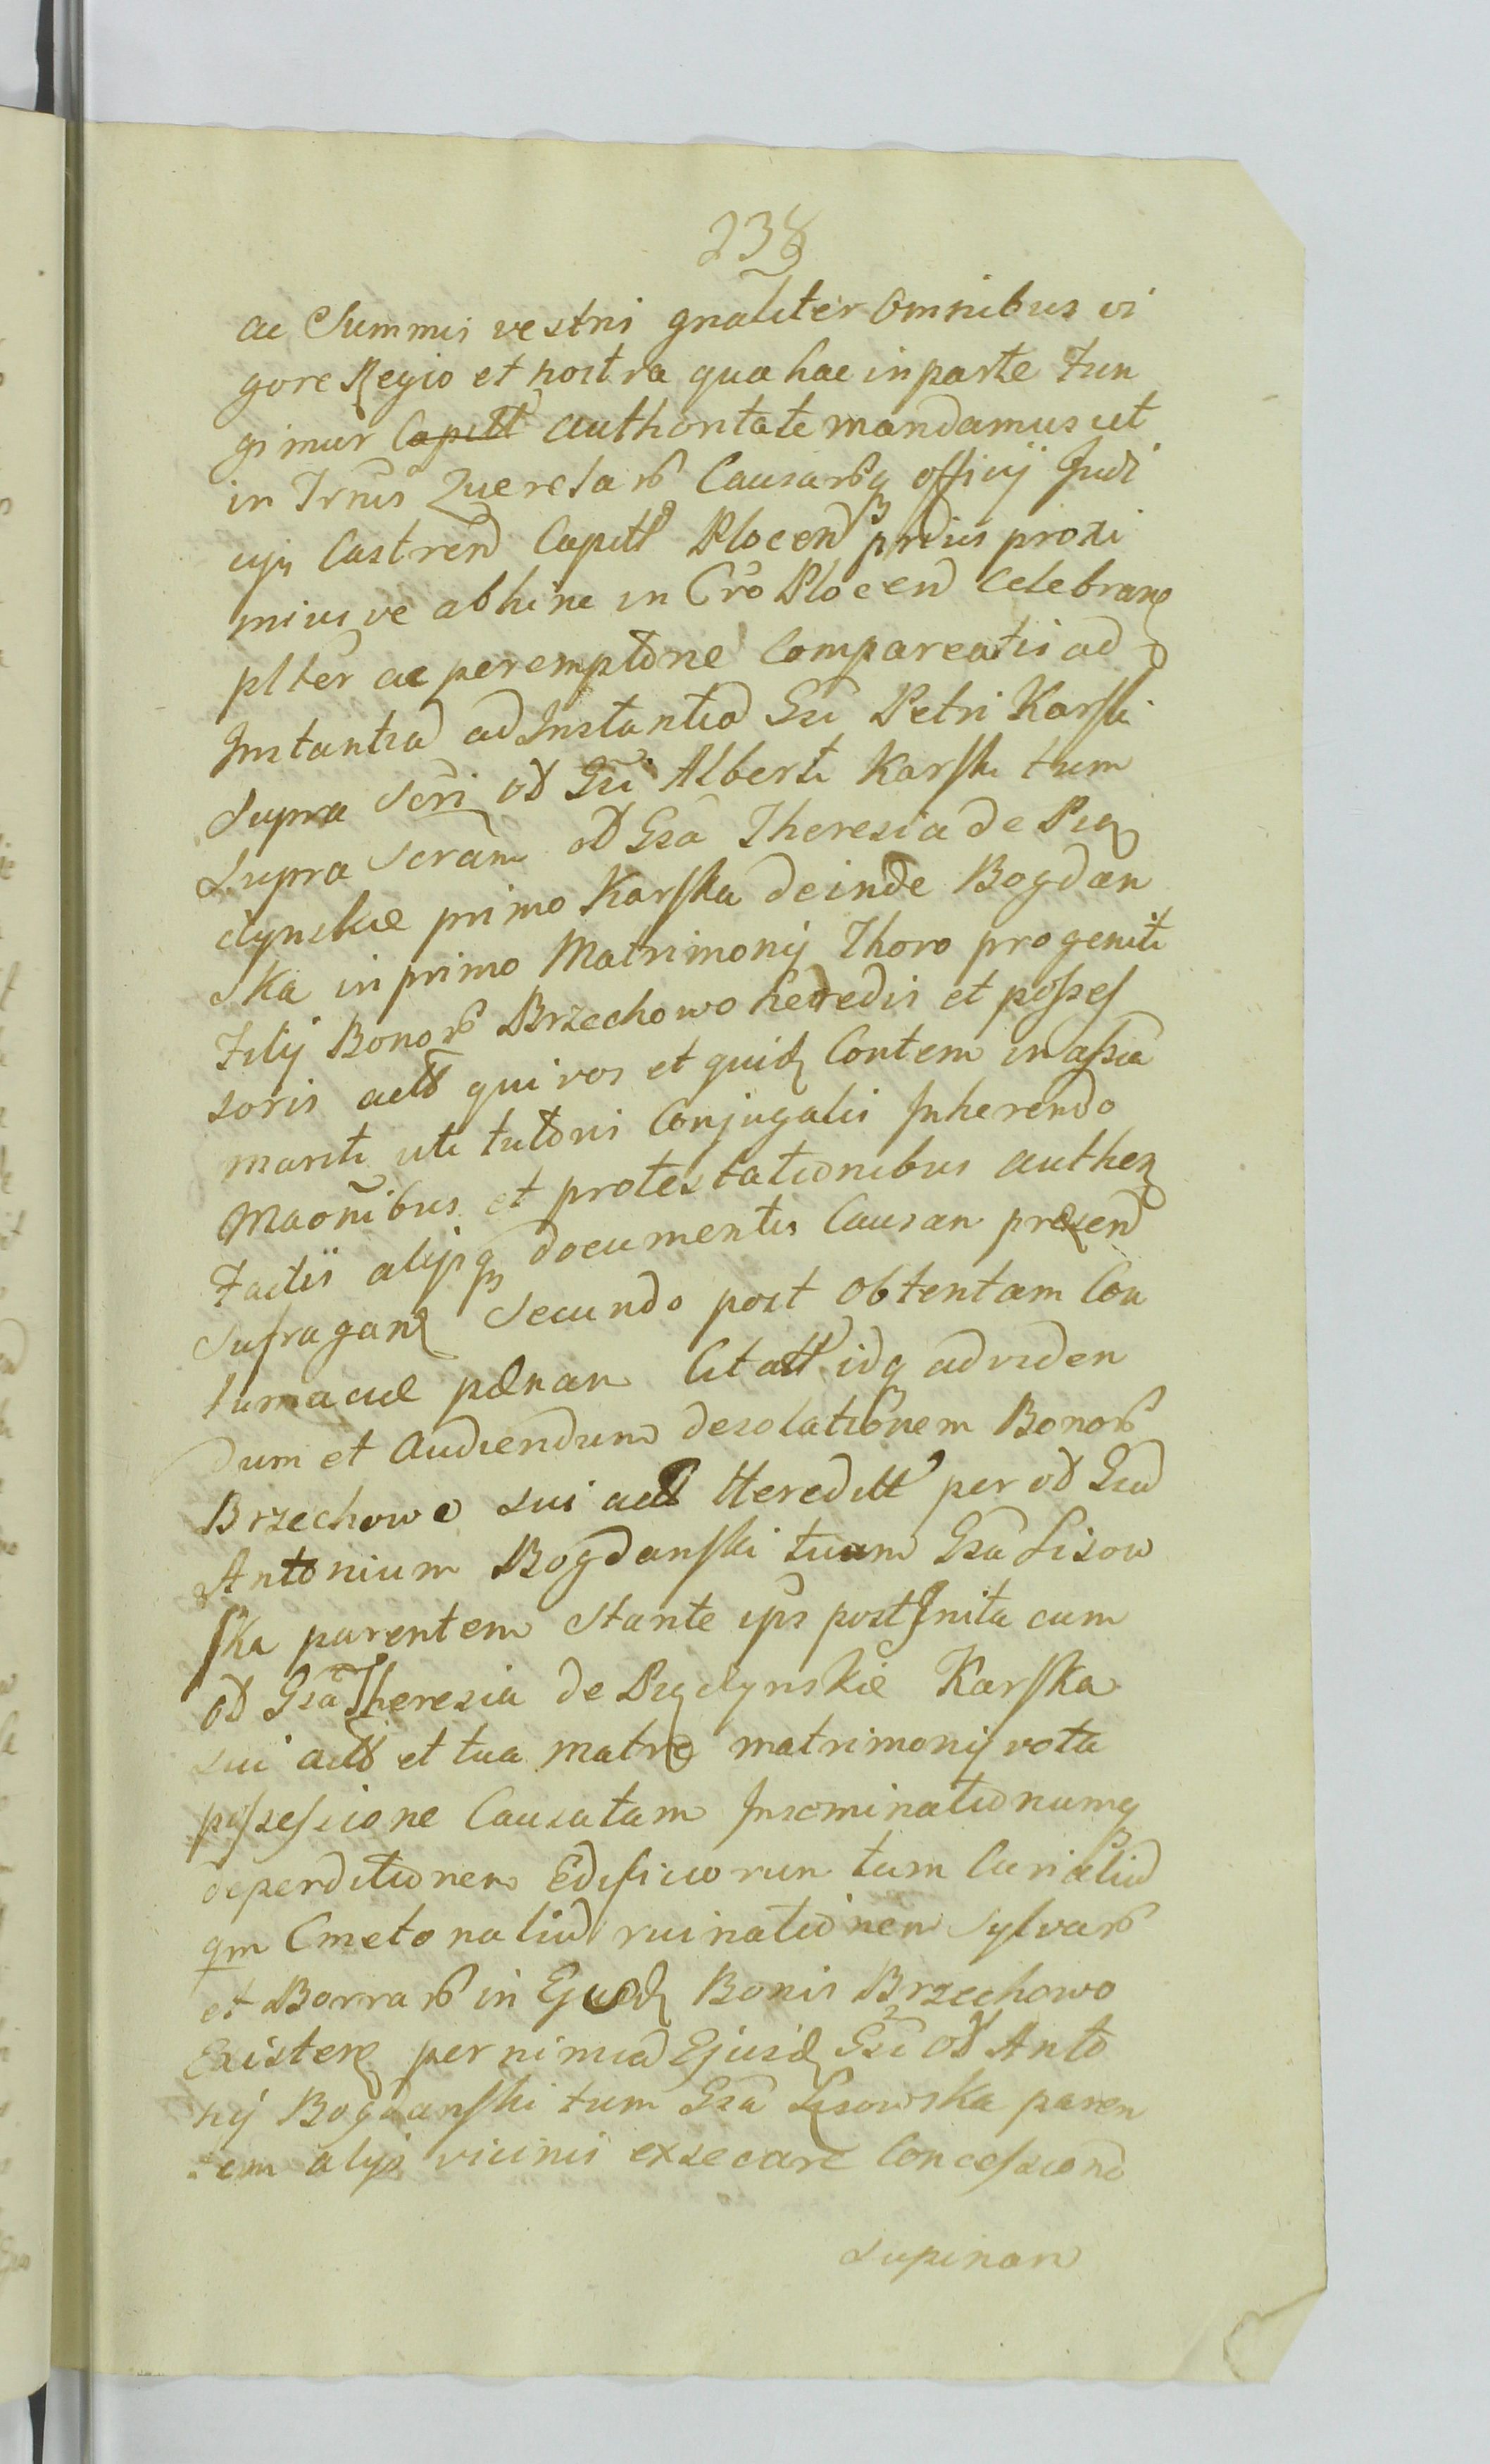 238
ac Summis vestri gnaliter omnibus vi
gore Regio et nostra qua hac in parte fun
gimur Capitt authoritate mandamus ut
in Trnis Querelarb Causarbq officij Judi
cijq Castren Capitt Plocen prius proxi
mius ve abhinc in Cro Plocen Celebranₔ
plter ac peremptorie Compareatis ad
Instantia ad Instantia Gsi Petri Karski
Supra Scri od Gsi Alberti Karski tum
Supra Scram od Gsa Theresia de Pią
czynskie primo Karska deinde Bogdan
ska in primo Matrimonij Thoro progeniti
Filij Bonorb Brzechowo heredis et posses
soris actt qui vos et quidₔ Contem in assia
mariti uti tutoris Conjugalis Inherendo
Maonibus et protestationibus authen
tactis alijsq documentis Causan presen
sufraganₔ Secundo post obtentam Con
tumacie pænan Citatt idq ad viden
dum et audiendum desolationem Bonorb
Brzechowo sui actt Hereditt per od Gsu
Antonium Bogdanski tuum Gsa Lisow
ska parentem stante ips post Inita cum
od Gsa Theresia de Piączynskie Karska
sui actt et tua matre matrimonij vota
possessione Causatam Inseminationumq
deperditionem Edificiorun tum Curialiu
qm Cmetonaliu ruinationem Sylvarb
et Borrarb in Ejusdₔ Bonis Brzechowo
Existenₔ per nimia Ejusdₔ Gsi od Anto
nij Bogdanski tum Gsa Lisowska paren
tem alijs vicinis exsecare Concessione
supinan